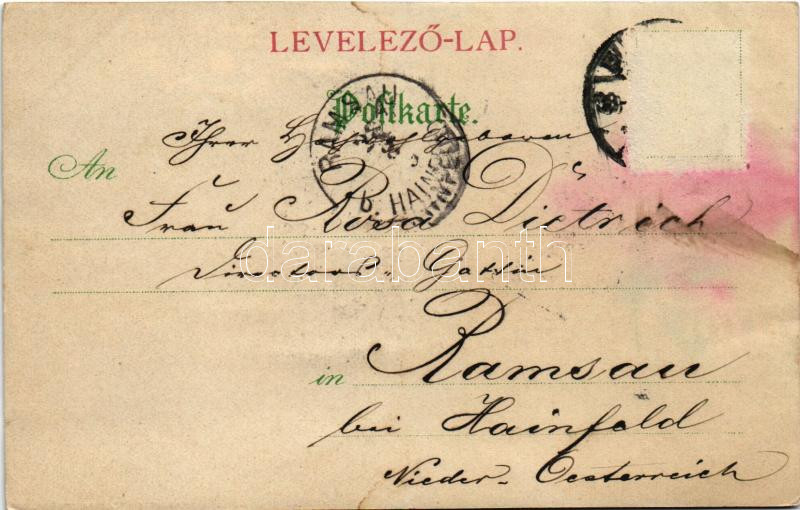 LEVELEZŐ-LAP.
Postkarte.
RAMSAU
b. HAINFELD
Ihrer Hochwohlgeboren
An
Frau Rosa Dietrich
Directors-Gattin
in Ramsau
bei Hainfeld
Nieder-Oesterreich
darabanth